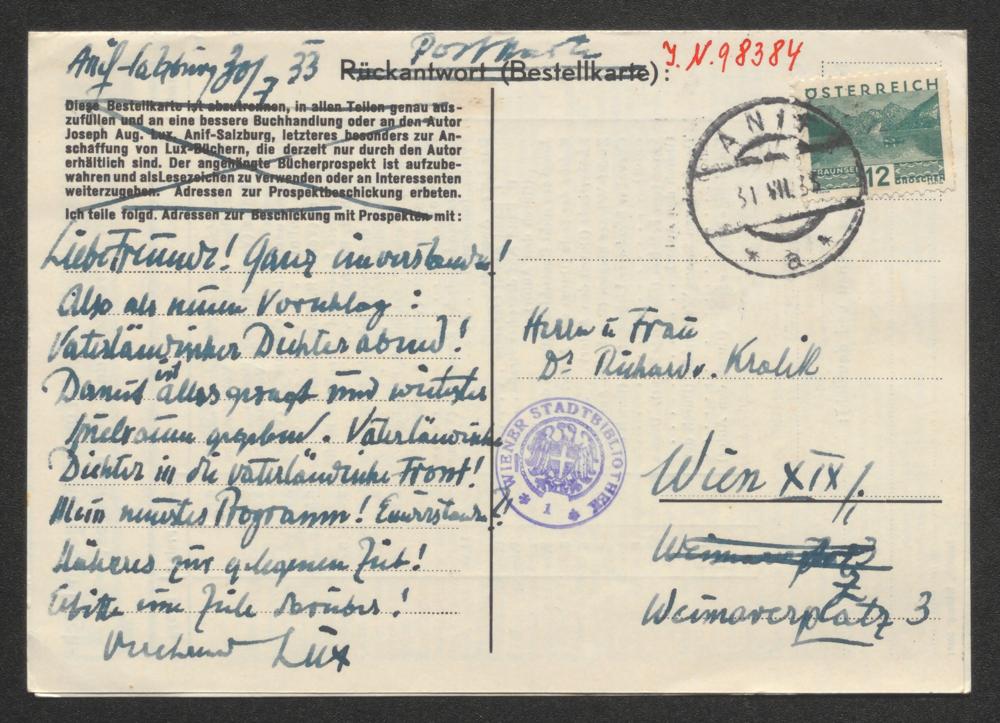 Anif-Salzburg 30/7 33
Postkarte
Rückantwort (Bestellkarte):
I. N. 98384
Diese Bestellkarte ist abzutrennen, in allen Teilen genau aus-
zufüllen und an eine bessere Buchhandlung oder an den Autor
Joseph Aug. Lux, Anif-Salzburg, letzteres besonders zur An-
schaffung von Lux-Büchern, die derzeit nur durch den Autor
erhältlich sind. Der angehängte Bücherprospekt ist aufzube-
wahren und als Lesezeichen zu verwenden oder an Interessenten
weiterzugeben. Adressen zur Prospektbeschickung erbeten.
Ich teile folgd. Adressen zur Beschickung mit Prospekten mit:
Liebe Freunde! Ganz einverstanden!
Also als neuen Vorschlag:
Vaterländischer Dichterabend!
Damit ist alles gesagt und weitester
Spielraum gegeben. Vaterländische
Dichter in die vaterländische Front!
Mein neuestes Programm! Einverstanden?!
Näheres zur gelegenen Zeit!
Erbitte eine Zeile darüber!
Verehrend Lux
ÖSTERREICH
TRAUNSEE
12 GROSCHEN
ANIF
31 VII 33
* a *
Herrn u Frau
Dr Richard v. Kralik
WIENER STADTBIBLIOTHEK
* 1 *
Wien XIX/.
Weimarerplatz 3